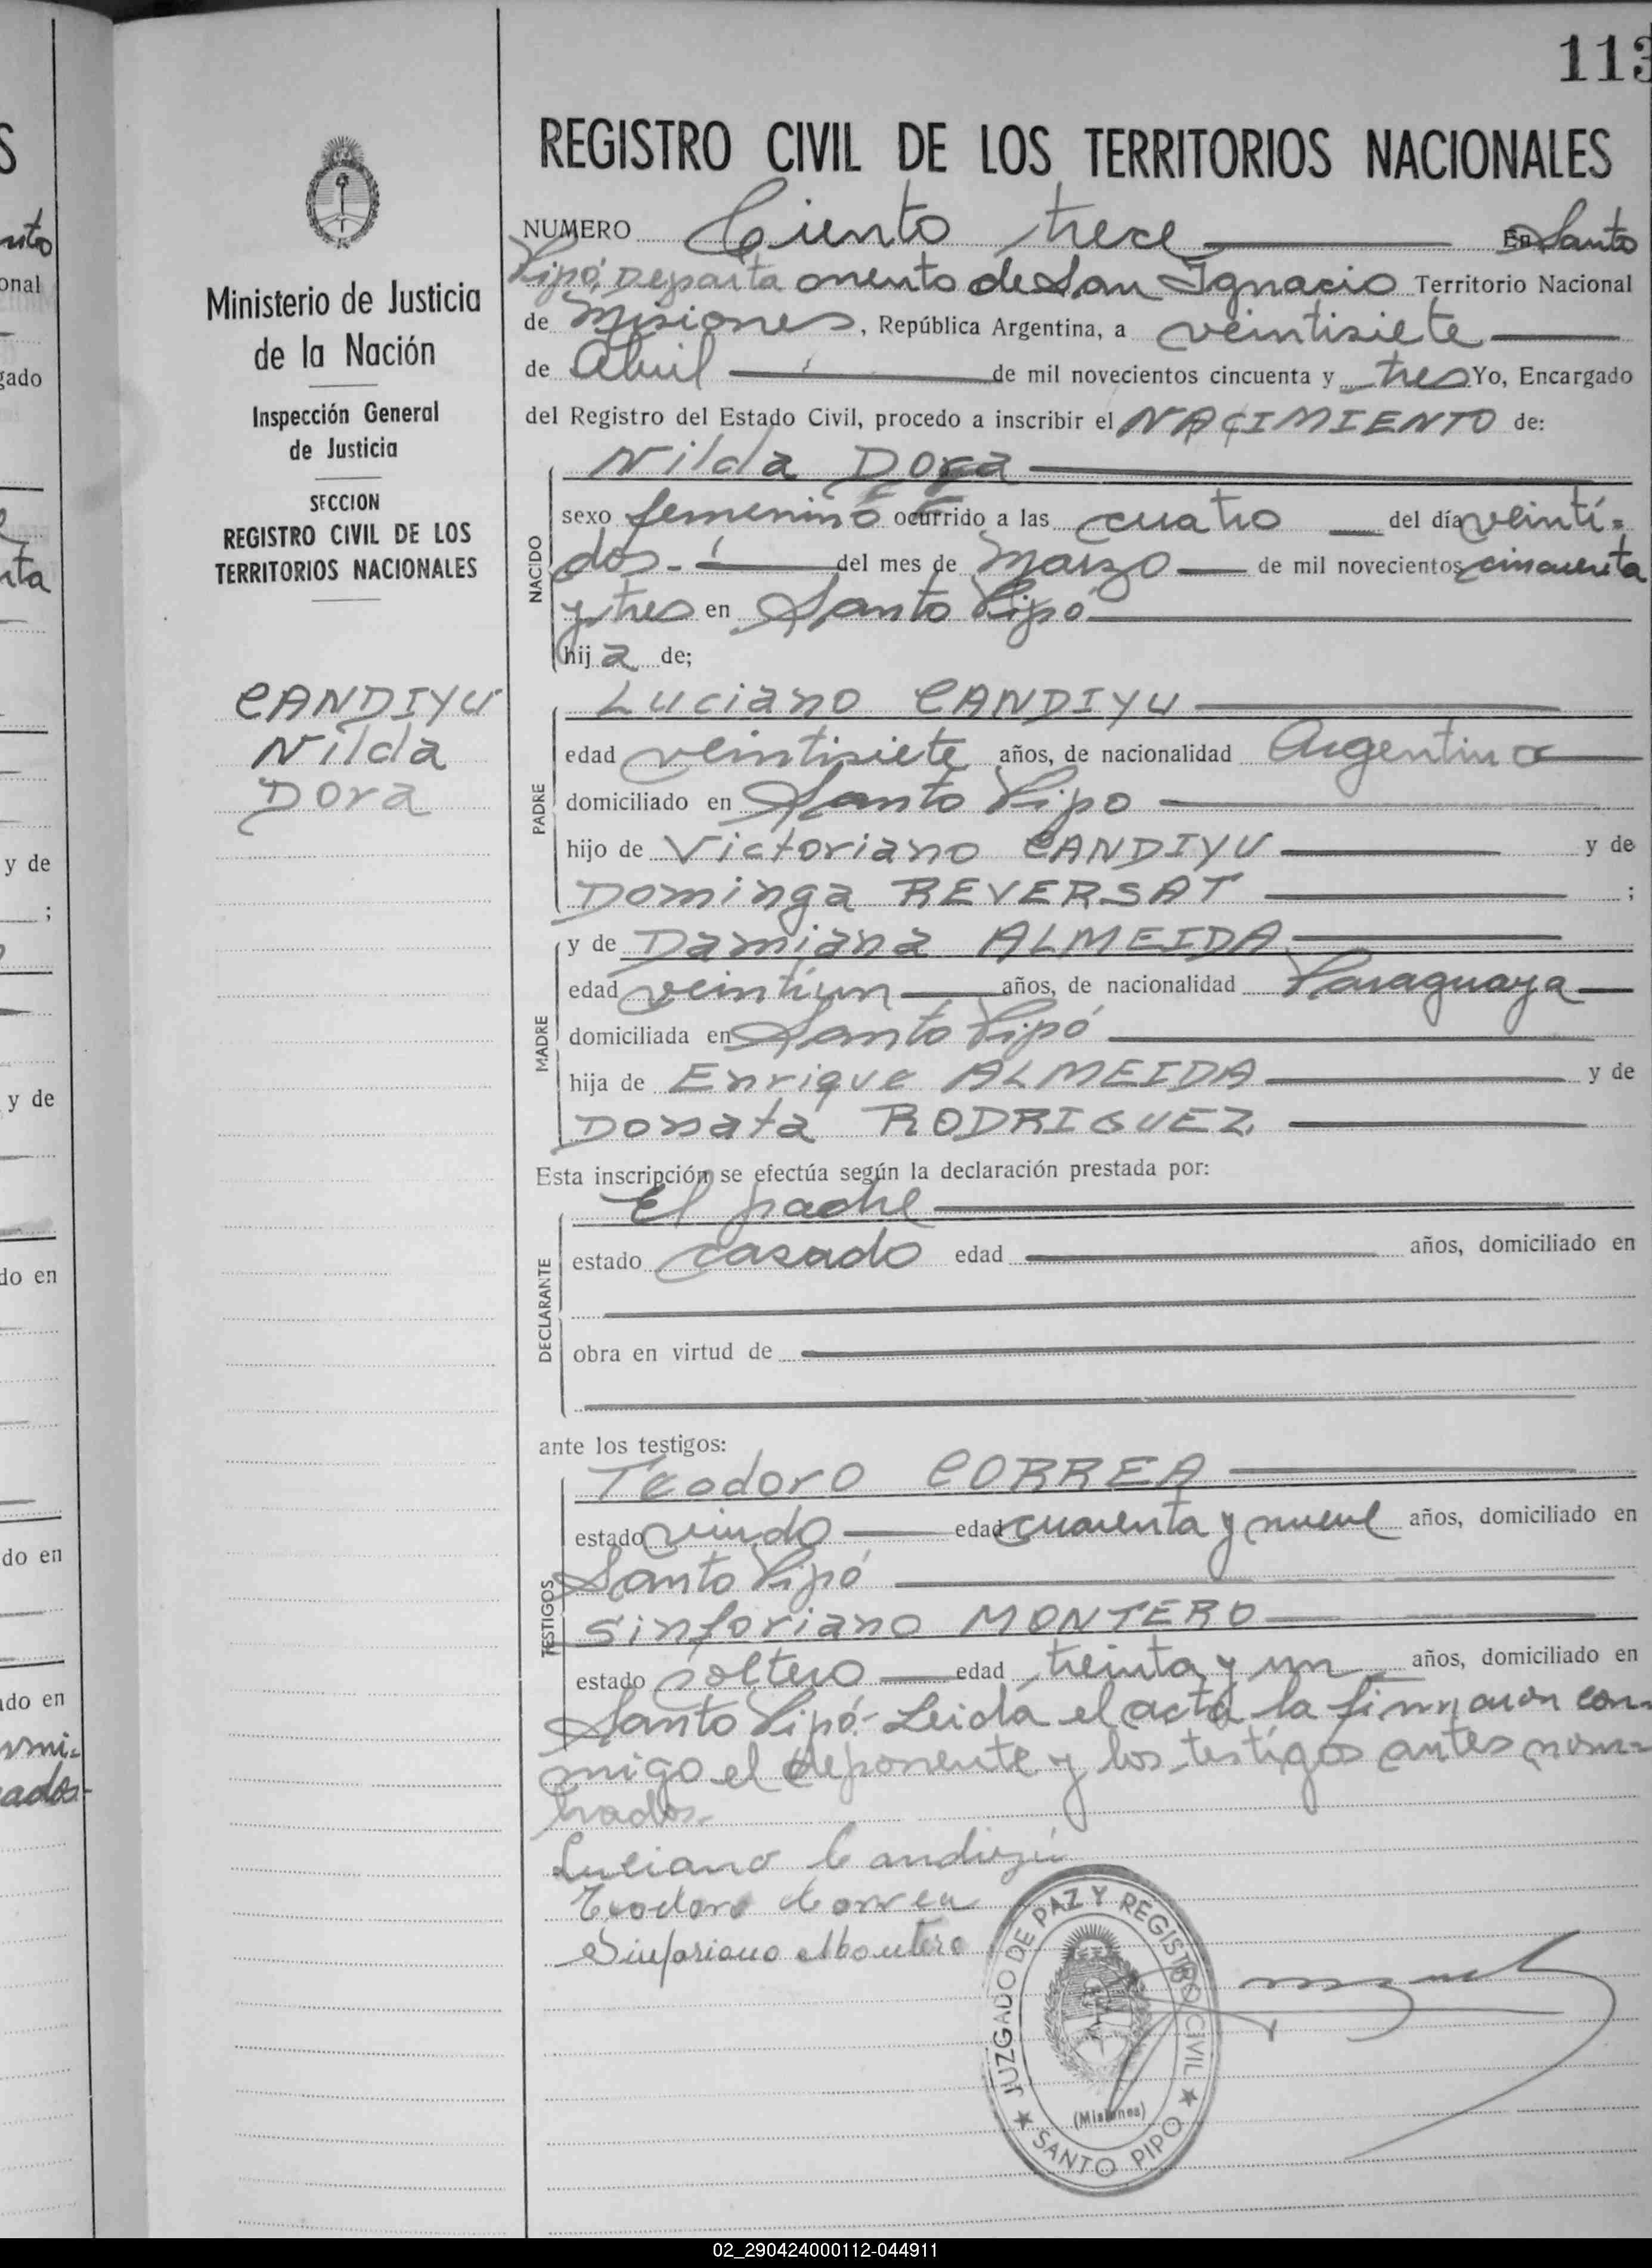 113
REGISTRO CIVIL DE LOS TERRITORIOS NACIONALES
NUMERO Ciento trece En Santo
Pipó, Departamento de San Ignacio Territorio Nacional
de Misiones, República Argentina, a veintisiete
de Abril de mil novecientos cincuenta y tres Yo, Encargado
del Registro del Estado Civil, procedo a inscribir el NACIMIENTO de:
Nilda Dora
sexo femenino ocurrido a las cuatro del día veinti=
dos.- del mes de Marzo de mil novecientos cincuenta
y tres en Santo Pipó
hija de;
NACIDO
Luciano CANDIYU
edad veintisiete años, de nacionalidad Argentina
domiciliado en Santo Pipo
hijo de Victoriano CANDIYU y de
Dominga REVERSAT ;
PADRE
y de Damiana ALMEIDA
edad veintiun años, de nacionalidad Paraguaya
domiciliada en Santo Pipó
hija de Enrique ALMEIDA y de
Donata RODRIGUEZ
MADRE
Esta inscripción se efectúa según la declaración prestada por:
El padre
estado casado edad años, domiciliado en
obra en virtud de
DECLARANTE
ante los testigos:
Teodoro CORREA
estado viudo edad cuarenta y nueve años, domiciliado en
Santo Pipó
Sinforiano MONTERO
estado soltero edad treinta y un años, domiciliado en
TESTIGOS
Santo Pipó.- Leida el acta la firmaron con=
migo el deponente y los testigos antes nom=
brados.-
Luciano Candiyú
Teodoro Correa
Sinforiano Montero
JUZGADO DE PAZ Y REGISTRO CIVIL
(Misiones)
★ SANTO PIPO ★
Ministerio de Justicia
de la Nación
Inspección General
de Justicia
SECCION
REGISTRO CIVIL DE LOS
TERRITORIOS NACIONALES
CANDIYU
Nilda
Dora
S
nto
onal
gado
nta
y de
;
y de
do en
do en
do en
rmi=
ados.-
02_290424000112-044911